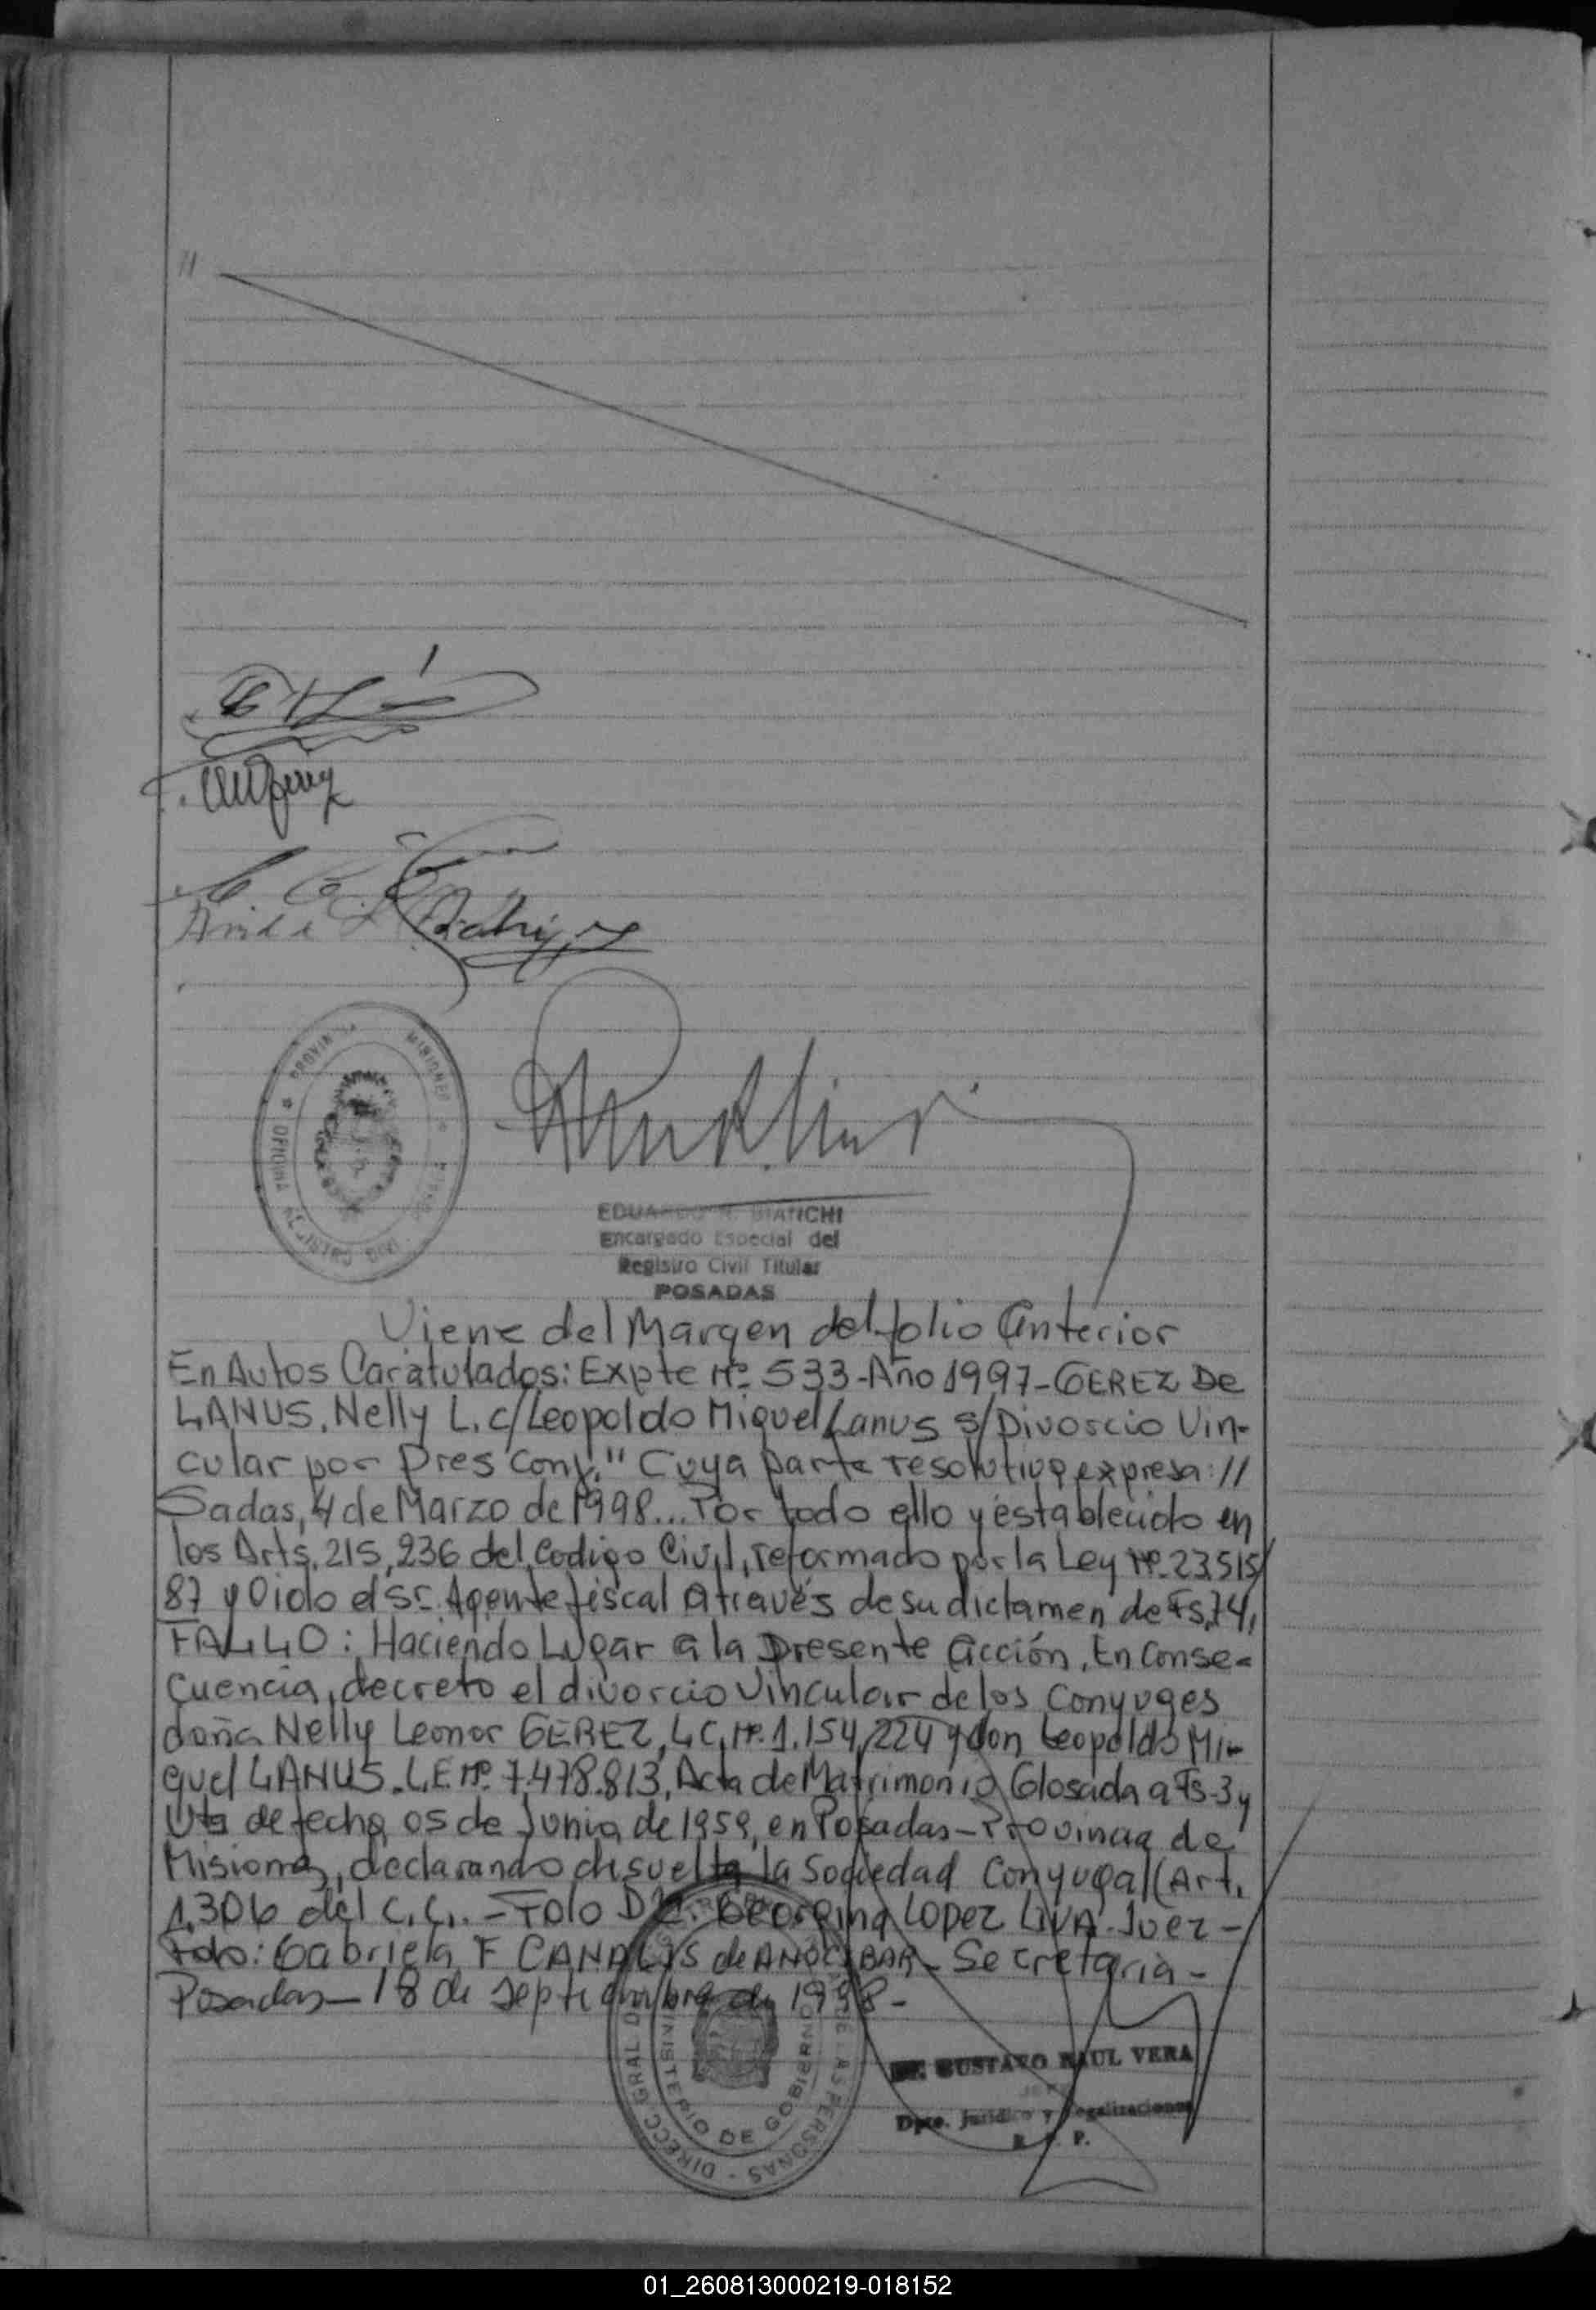 //
EDUARDO R. BIANCHI
Encargado Especial del
Registro Civil Titular
POSADAS
PROVINCIA MISIONES
OFICINA REGISTRO CIVIL
Viene del Margen del folio Anterior
En Autos Caratulados: Expte Nº 533-Año 1997-GEREZ De
LANUS, Nelly L. c/Leopoldo Miguel Lanus s/Divorcio Vin-
cular por Pres Conj." Cuya parte resolutiva expresa: //
Sadas, 4 de Marzo de 1998... Por todo ello y establecido en
los Arts, 215, 236 del Codigo Civil, reformado por la Ley Nº 23515/
87 y Oido el Sr. Agente fiscal a través de su dictamen de Fs, 74,
FALLO: Haciendo Lugar a la Presente acción. En Conse-
cuencia, decreto el divorcio Vincular de los Conyuges
doña Nelly Leonor GEREZ, L.C. Nº 1.154,224 y don Leopoldo Mi-
guel LANUS. L.E Nº 7.478.813, Acta de Matrimonio Glosada a Fs-3 y
Vta de fecha 05 de Junio de 1959, en Posadas - Provincia de
Misiones, declarando disuelta la Sociedad Conyugal (Art.
1.306 del C.C.. - Fdo Dra. Georgina Lopez LIVA. Juez -
Fdo: Gabriela F CANALIS de ANOCIBAR - Secretaria -
Posadas - 18 de Septiembre de 1998 -
DIRECC GRAL DE LAS PERSONAS
MINISTERIO DE GOBIERNO
Dr. GUSTAVO RAUL VERA
JEFE
Dpto. Jurídico y Legalizaciones
R. P. P.
01_260813000219-018152